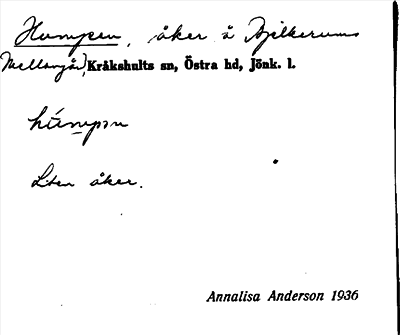 Humpen, åker å Bjelkerums
Mellangård, Kråkshults sn, Östra hd, Jönk. l.
húmpən
Liten åker.
Annalisa Anderson 1936